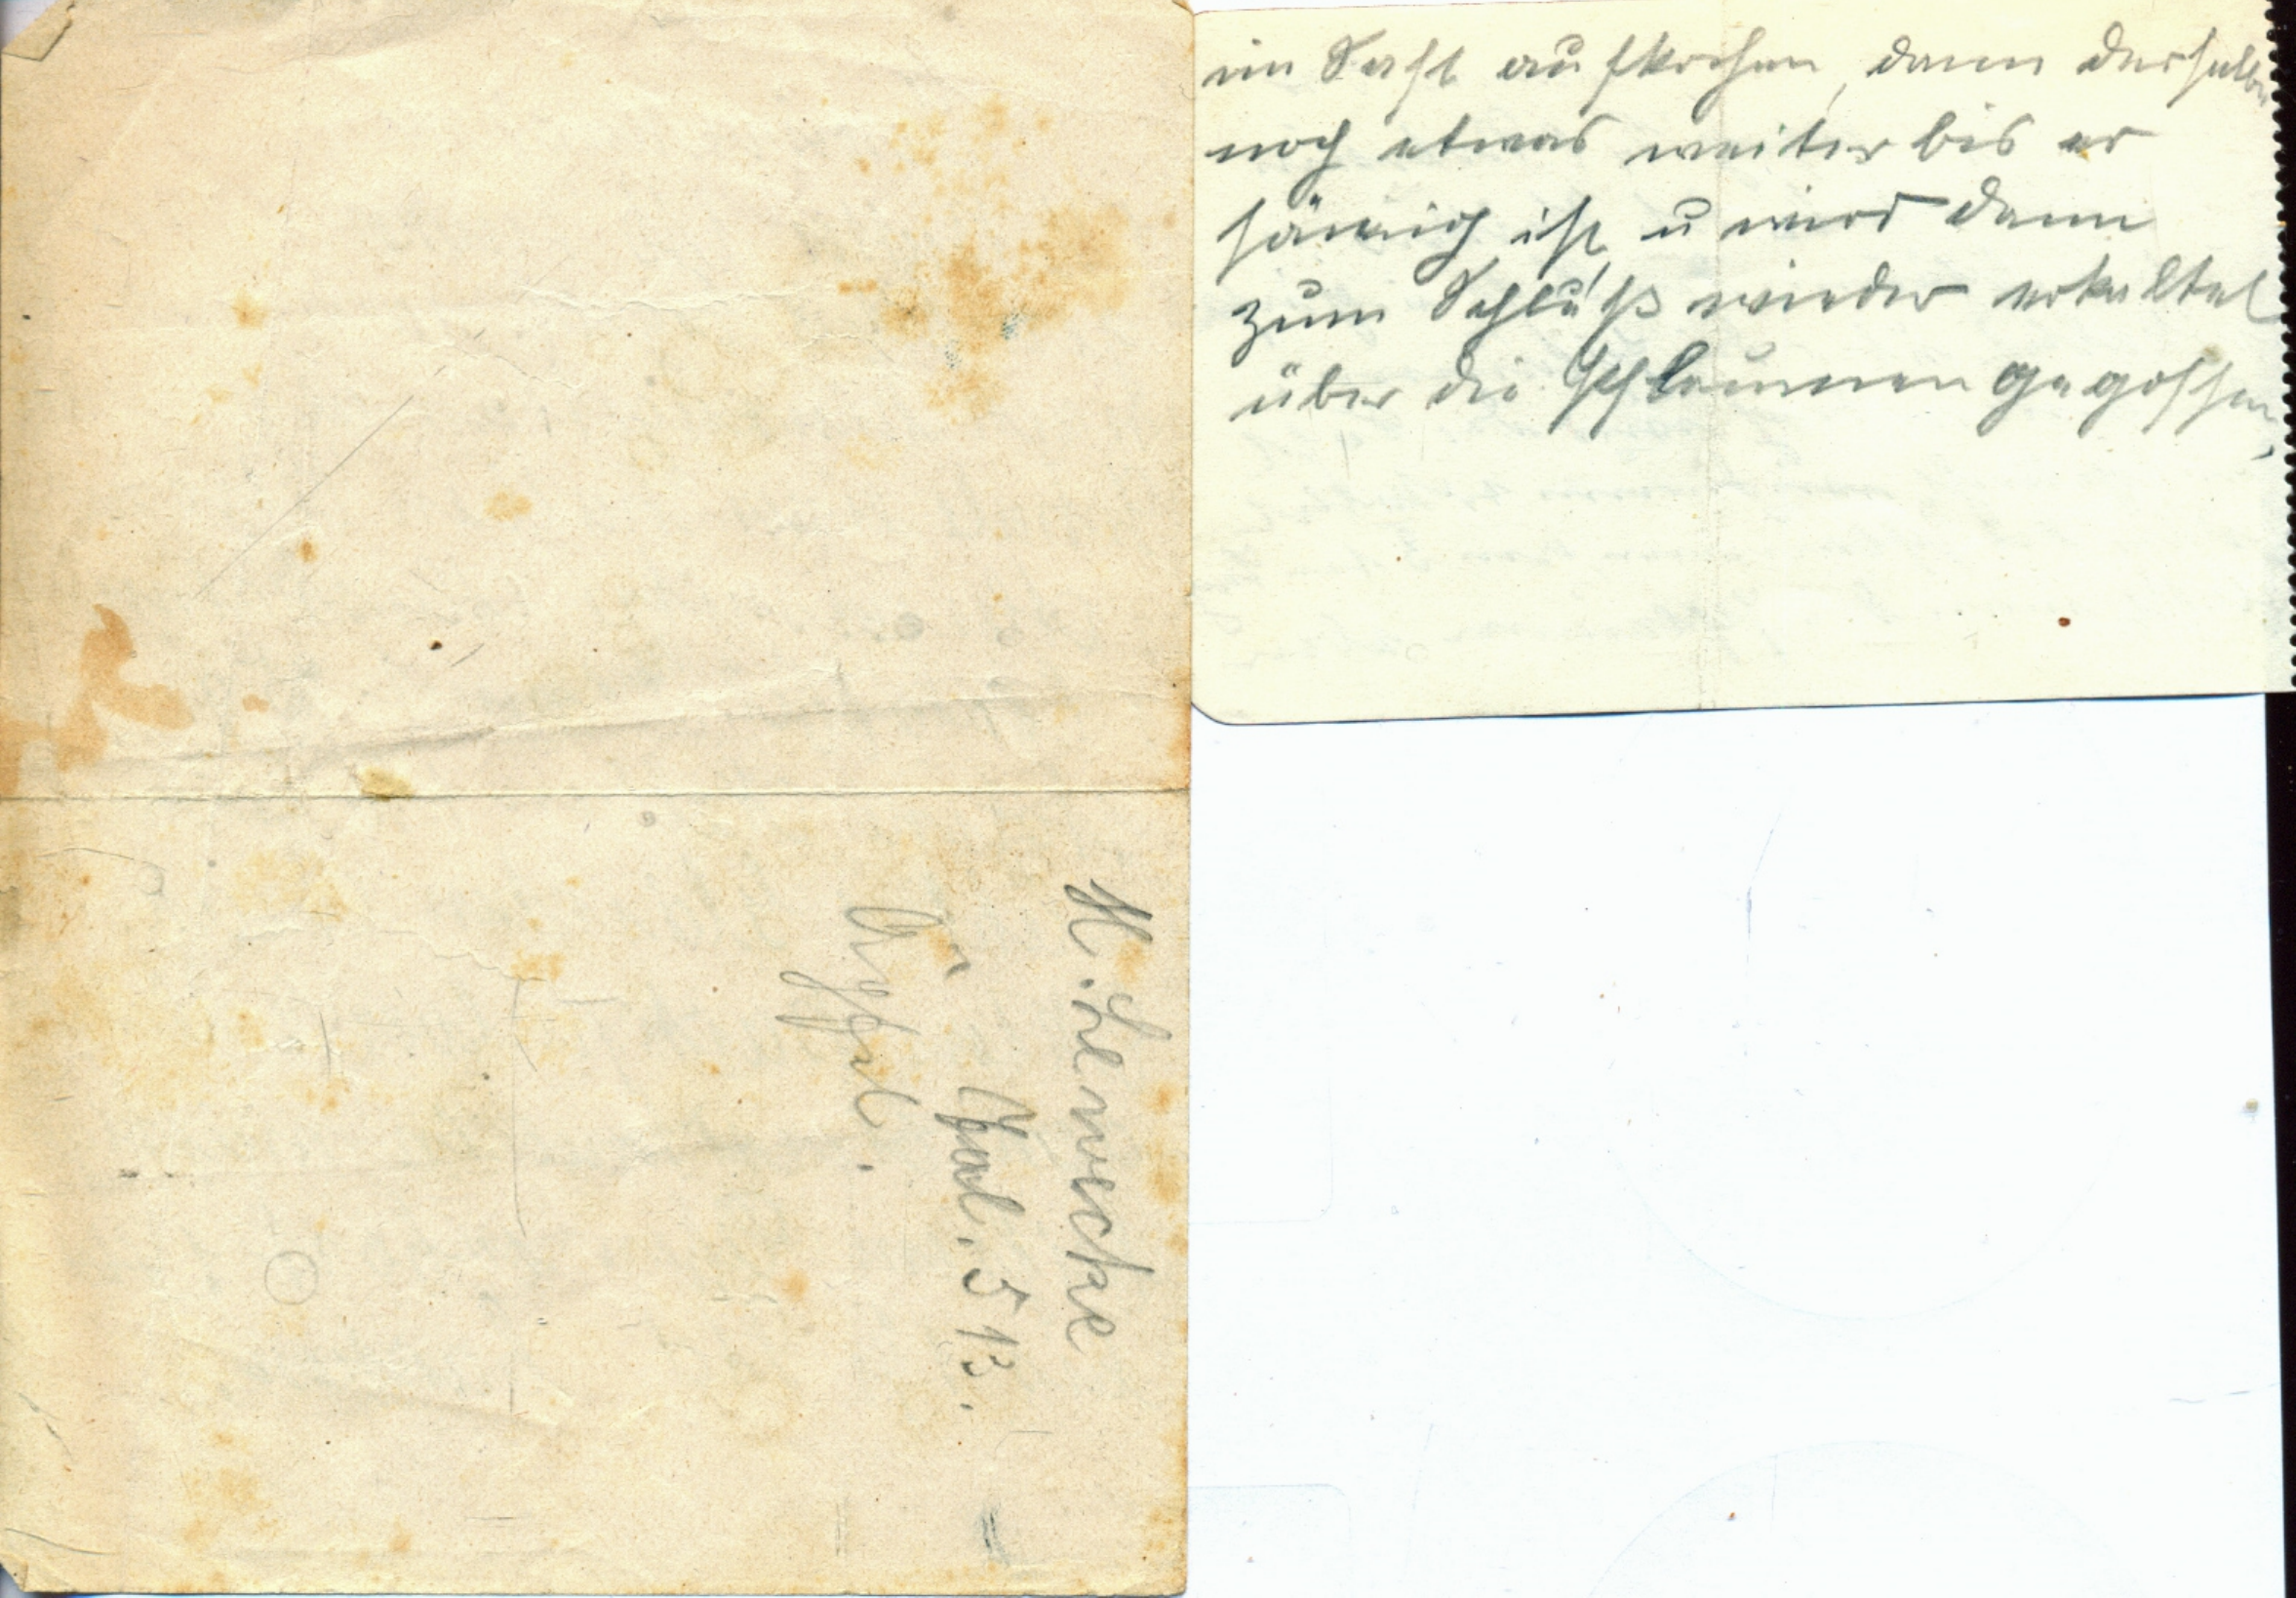 im Saft aufkochen, dann derselbe
noch etwas weiter bis er
sämig ist, u wird dann
zum Schluß wieder erkaltet
über die Pflaumen gegossen,
H.
5 13.